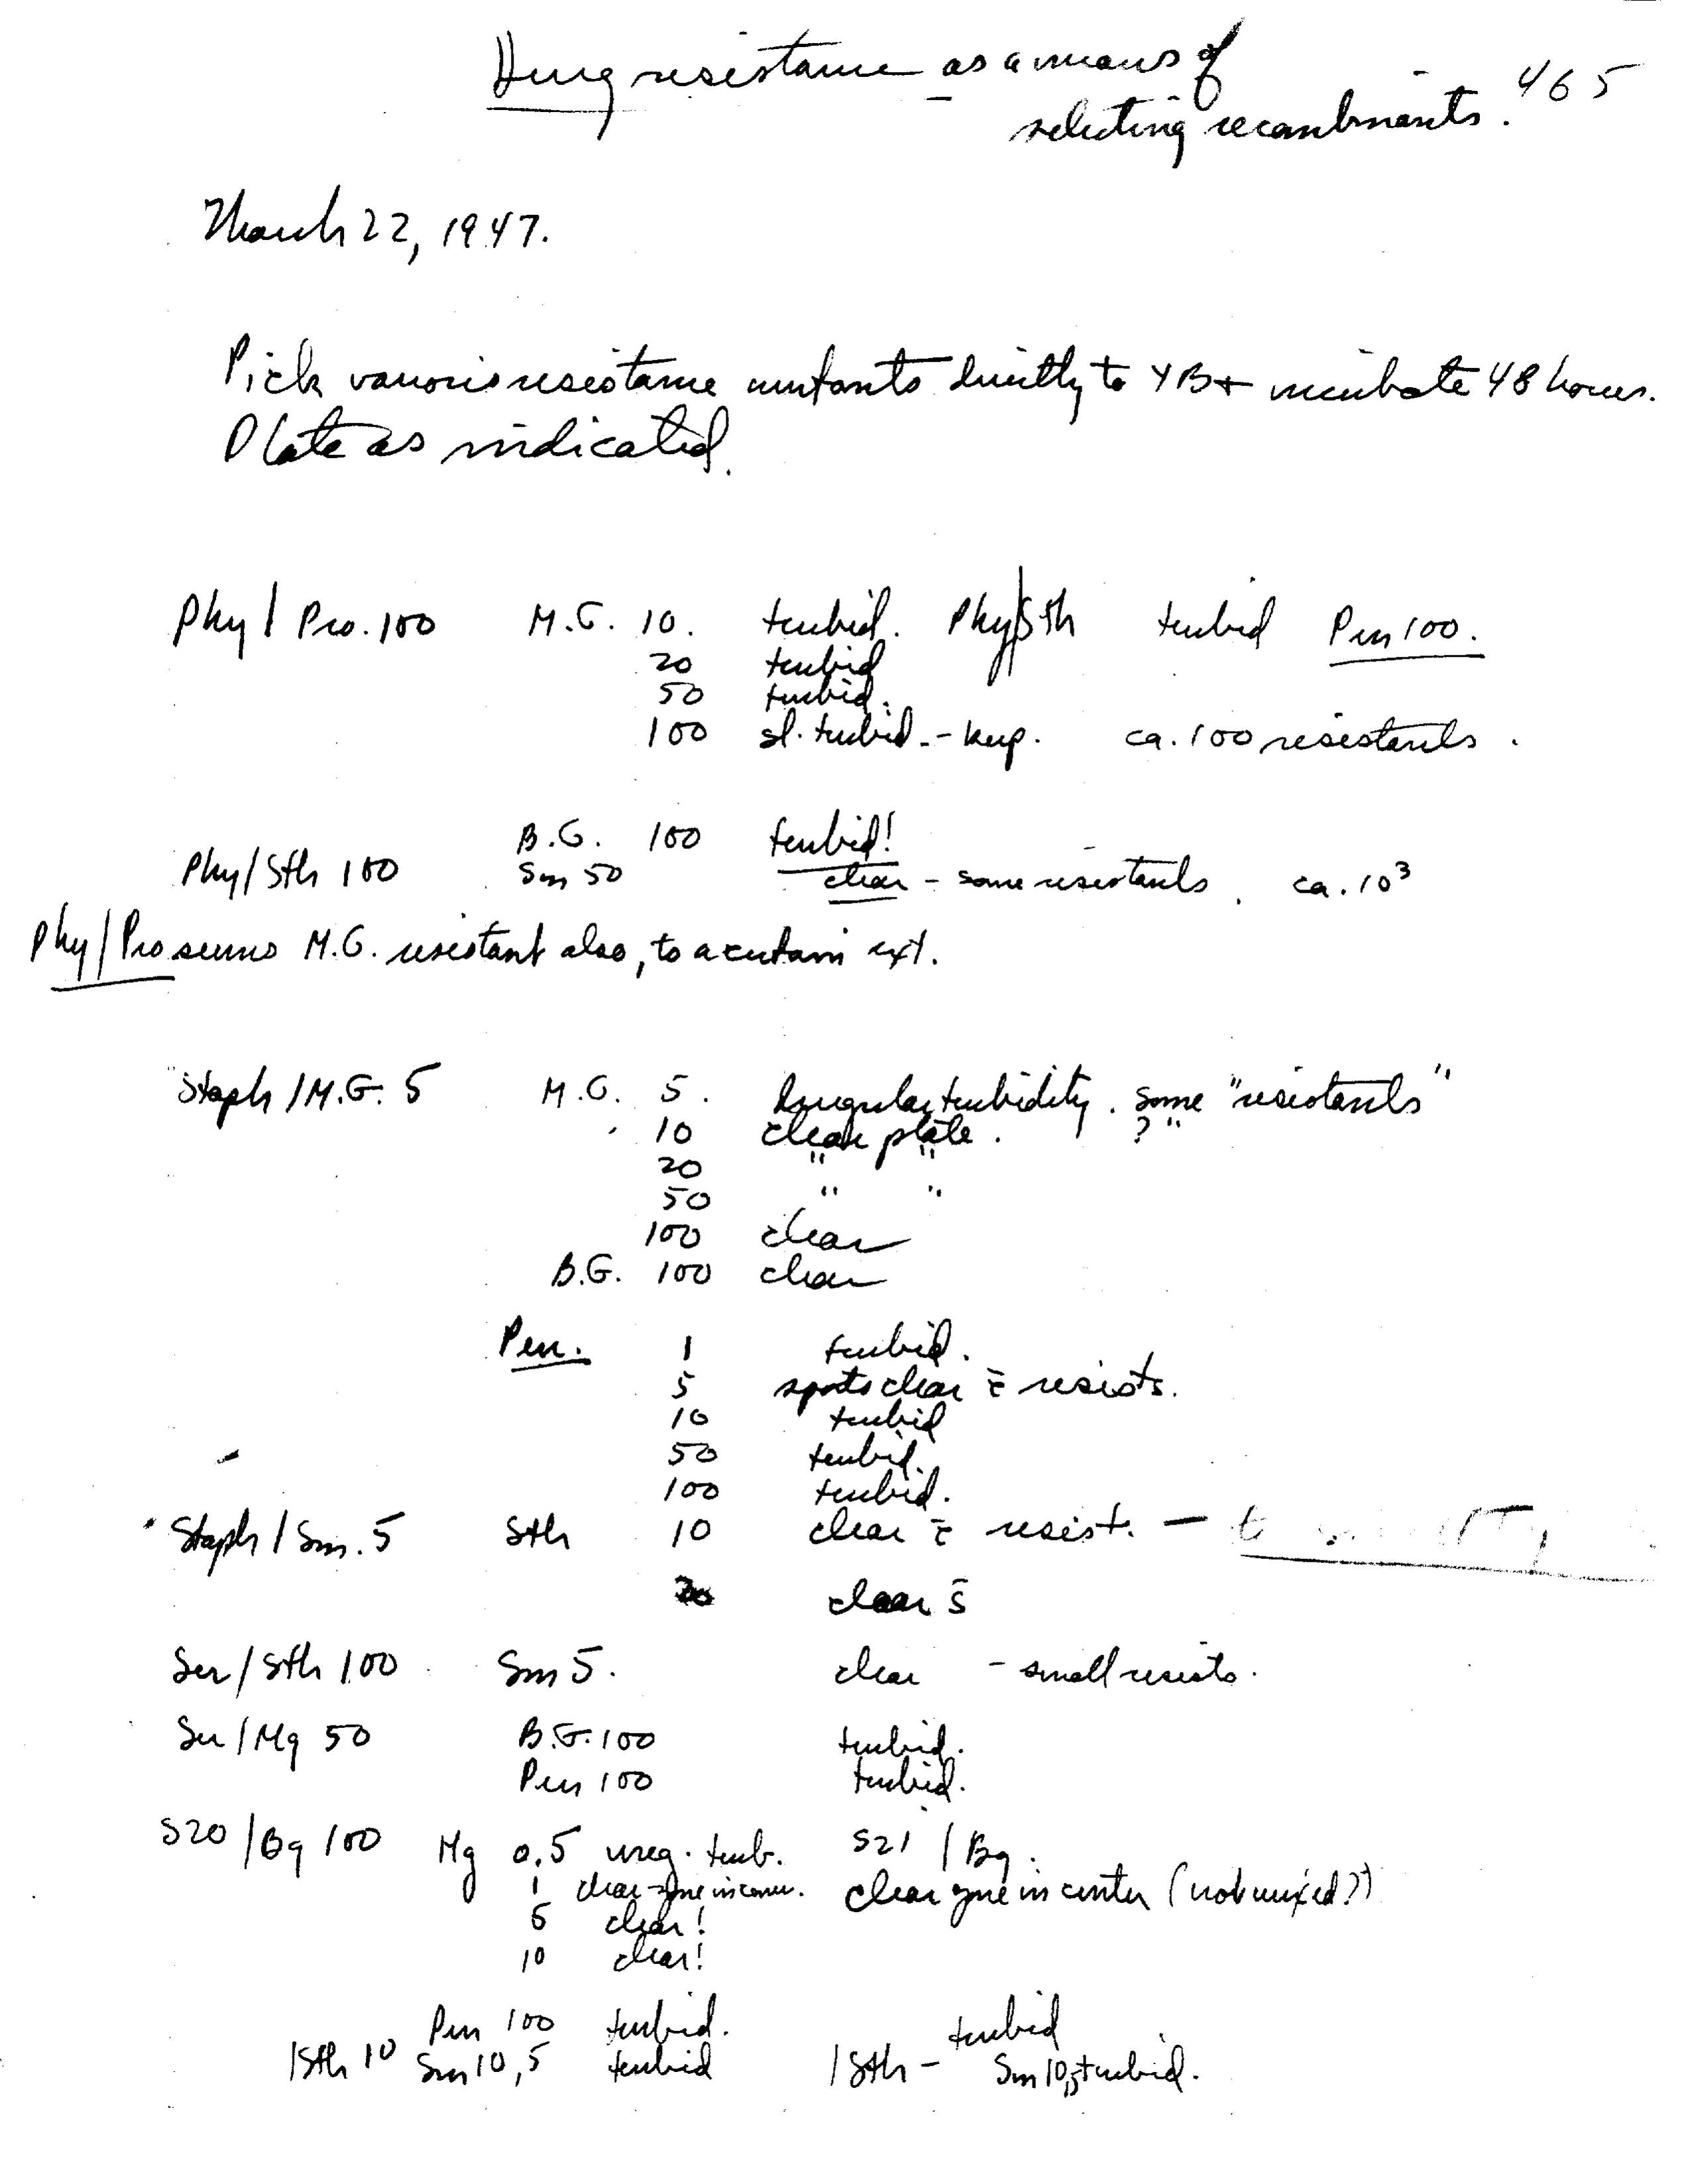 Drug resistance as a means of
selecting recombinants. 465
March 22, 1947.
Pick various resistance mutants directly to YB + incubate 48 hours.
Plate as indicated.
Phy / Pro. 100 M.G. 10. turbid. Phy/Sth turbid Pen 100.
20 turbid
50 turbid.
100 sl. turbid. - keep. ca. 100 resistants.
B.G. 100 turbid!
Phy/Sth 100 Sm 50 clear - some resistants. ca. 10³
Phy/Pro seems M.G. resistant also, to a certain ext.
Staph /M.G. 5 M.G. 5. Irregular turbidity. some "resistants"
10 clear plate. ? "
20 " "
50 " "
100 clear
B.G. 100 clear
Pen. 1 turbid.
5 spots clear c̄ resists.
10 turbid
50 turbid.
100 turbid.
Staph / Sm. 5 Sth 10 clear c̄ resist. —
20 clear s̄
Ser/Sth 100 Sm 5. clear - small resists.
Ser/Mg 50 B.G. 100 turbid.
Pen 100 turbid.
S20 /Bg 100 Mg 0.5 irreg. turb. S21 / Bg.
1 clear zone in corner. clear zone in center (not mixed?)
5 clear!
10 clear!
Pen 100 turbid. turbid
/Sth 10 Sm 10, 5 turbid /Sth - Sm 10,5 turbid.